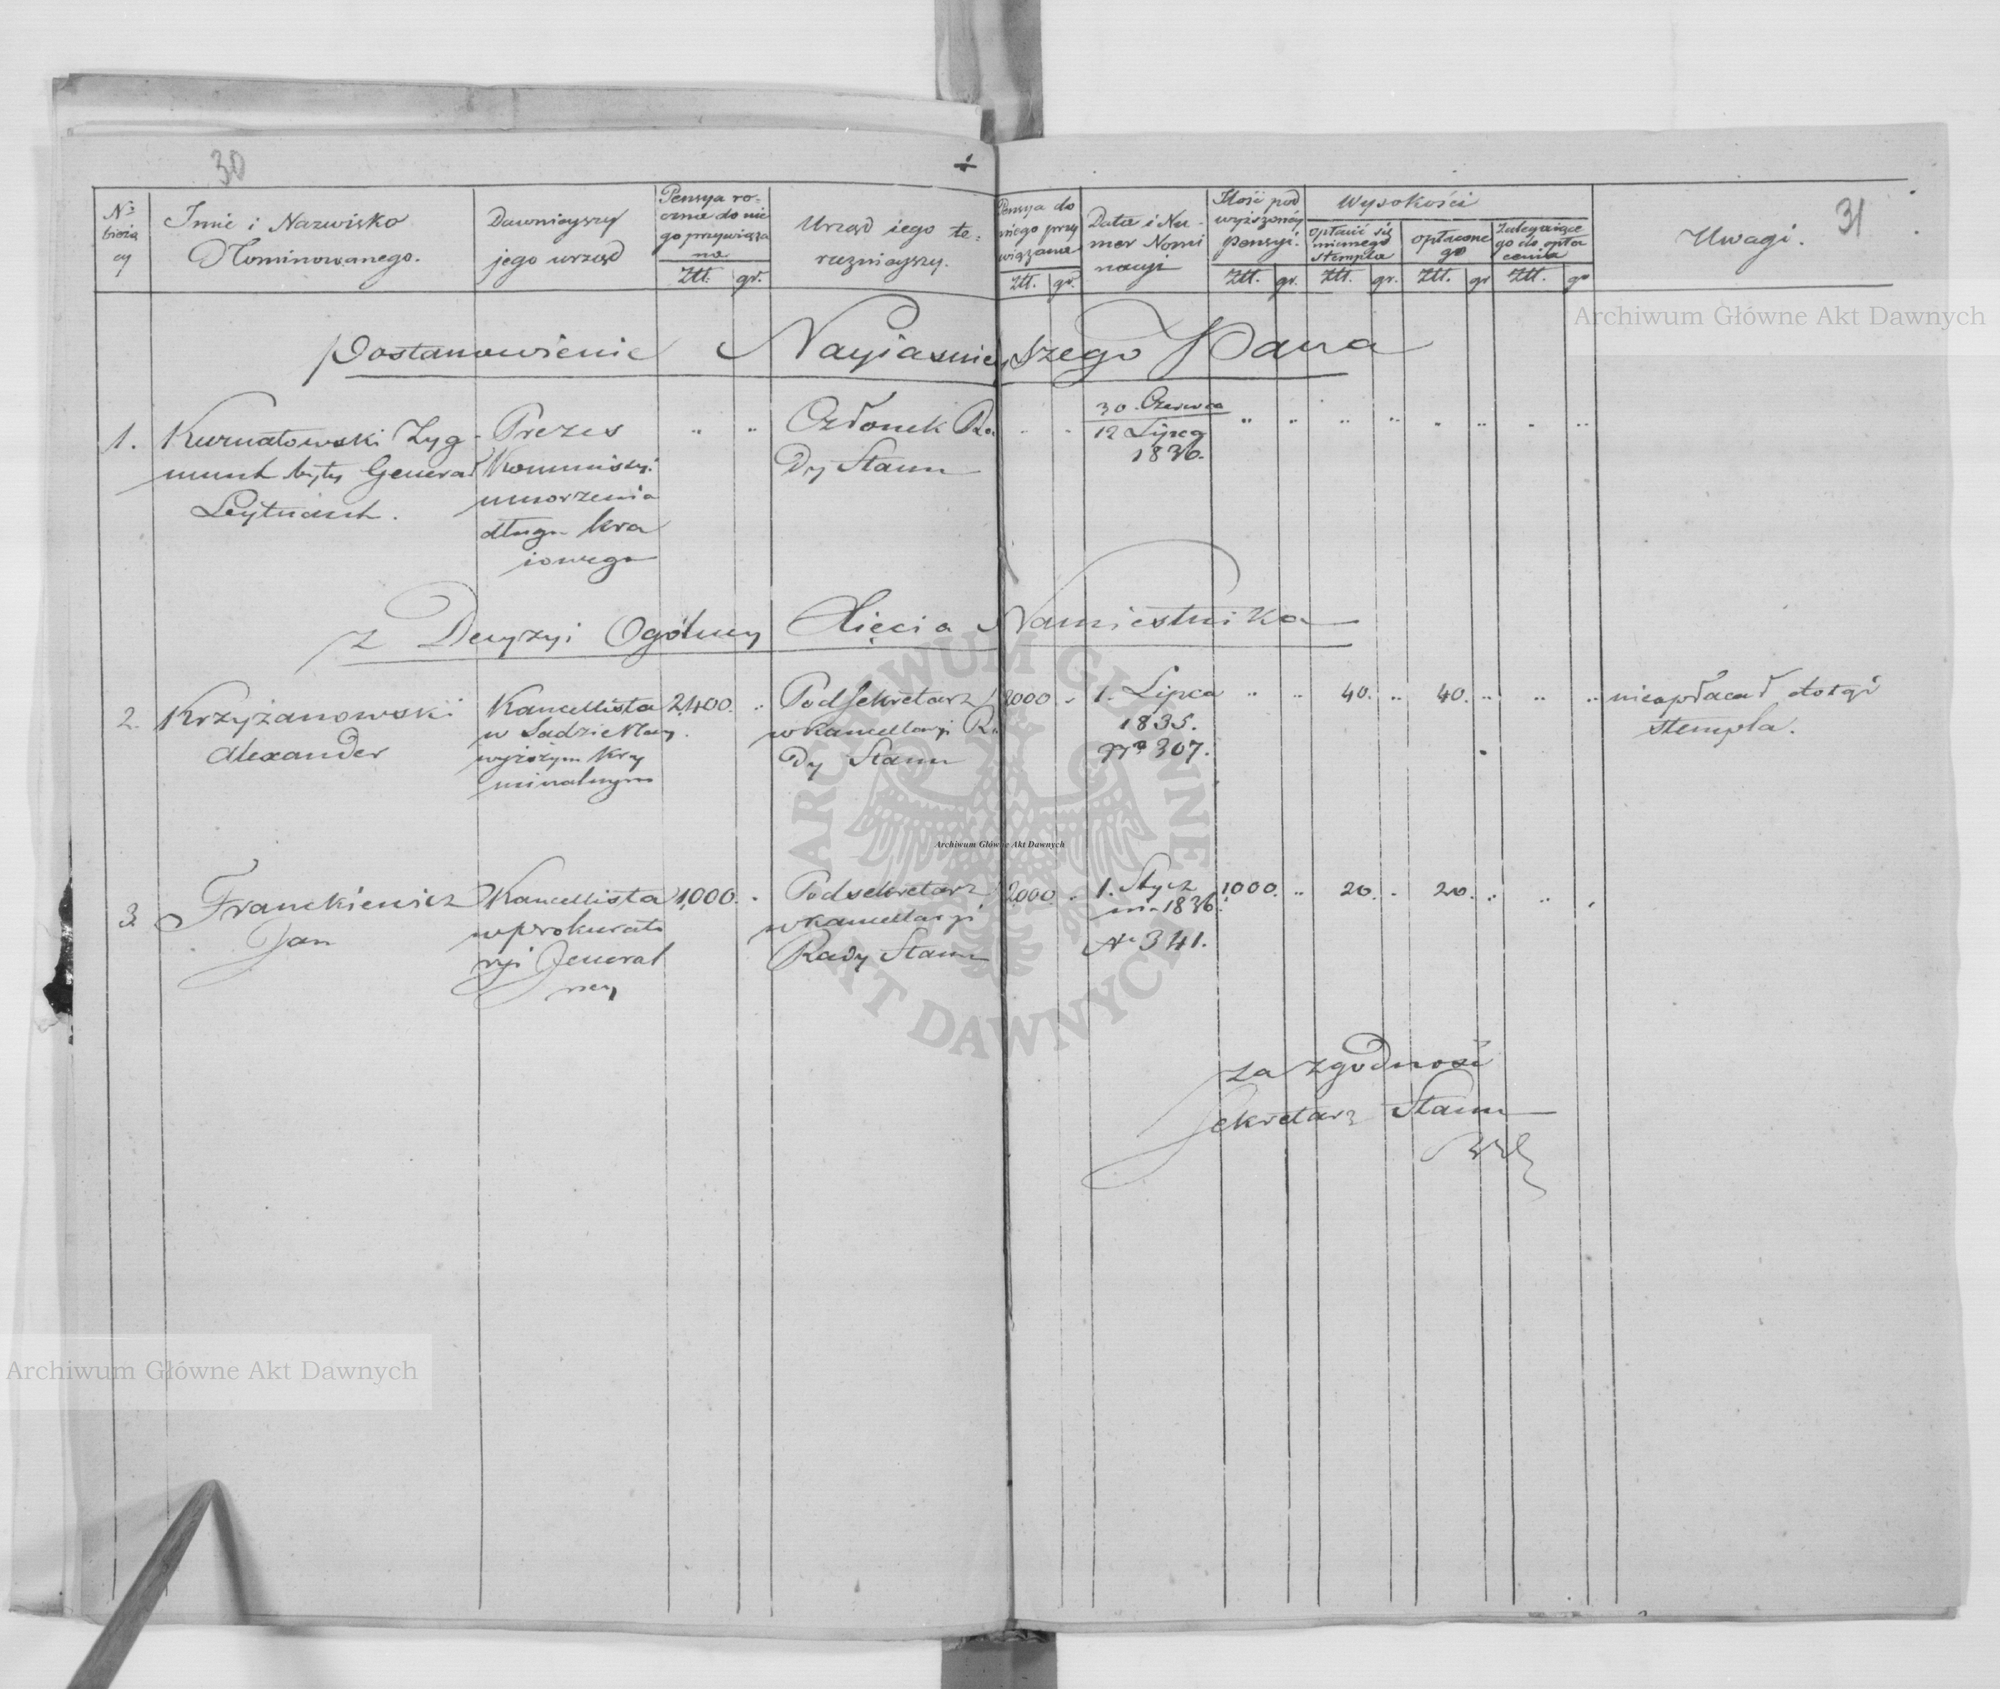 30
31
Nr bieżą cy
Imie i Nazwisko Nominowanego.
Dawnieyszy jego urząd
Pensya roczna do niego przywiąza na
Złł. gr.
Urząd iego terazniayszy.
Pensya do niego przywiązana
Złł. gr.
Data i Numer Nominacyi
Ilość pod wyższonéy pensyi.
Złł. gr.
Wysokości
opłacić się mianego stempla
Złł. gr.
opłacone go
Złł. gr
Zalegaiące go do opła cenia
Złł. gr
Uwagi.
Postanowienie Nayiasnieyszego Pana
1.
Kurnatowski Zyg-
munt były Generał
Leytnant.
Prezes
Kommissyi
umorzenia
długu kra
iowego
Członek Ra
dy Stanu
30 Czerwca
12 Lipca
1836.
z Decyzyi Ogólney Xięcia Namiestnika
2.
Krzyżanowski
Alexander
Kancellista
w Sądzie Nay
wyższym Kry
minalnym
2,400.
Podsekretarz
w kancellaryi Ra
dy Stanu
2000
1. Lipca
1835.
No 307.
40.
40.
nieopłacał dotąd
stempla.
3.
Franckiewicz
Jan
Kancellista
w prokurato
ryi Jeneral
ney
1,000.
Podsekretarz
w kancellaryi
Rady Stanu
2000
1. Stycz
nia 1836.
No 341.
1000.
20.
20.
za zgodność
Sekretarz Stanu
Archiwum Główne Akt Dawnych
ARCHIWUM GŁÓWNE AKT DAWNYCH
Archiwum Główne Akt Dawnych
Archiwum Główne Akt Dawnych